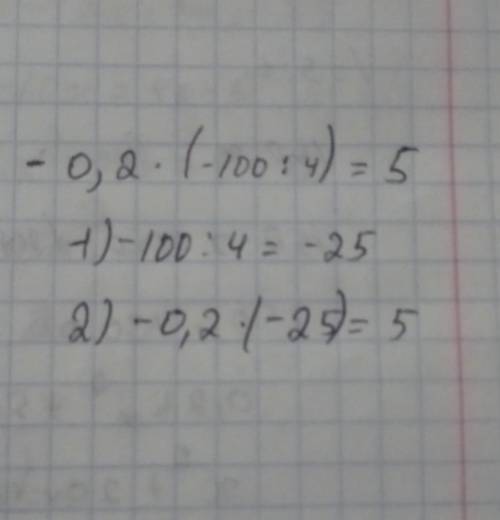 - 0,2 · (-100 : 4) = 5
1) -100 : 4 = -25
2) -0,2 · (-25) = 5